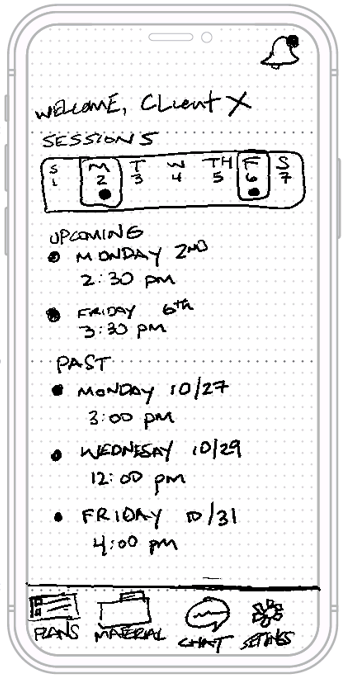 WELCOME, CLient X
SESSIONS
S M T W TH F S
1 2 3 4 5 6 7
UPCOMING
MONDAY 2ND
2:30 pm
FRIDAY 6th
3:30 pm
PAST
MONDAY 10/27
3:00 pm
WEDNESAY 10/29
12:00 pm
FRIDAY 10/31
4:00 pm
PLANS MATERIAL CHAT SETTINGS